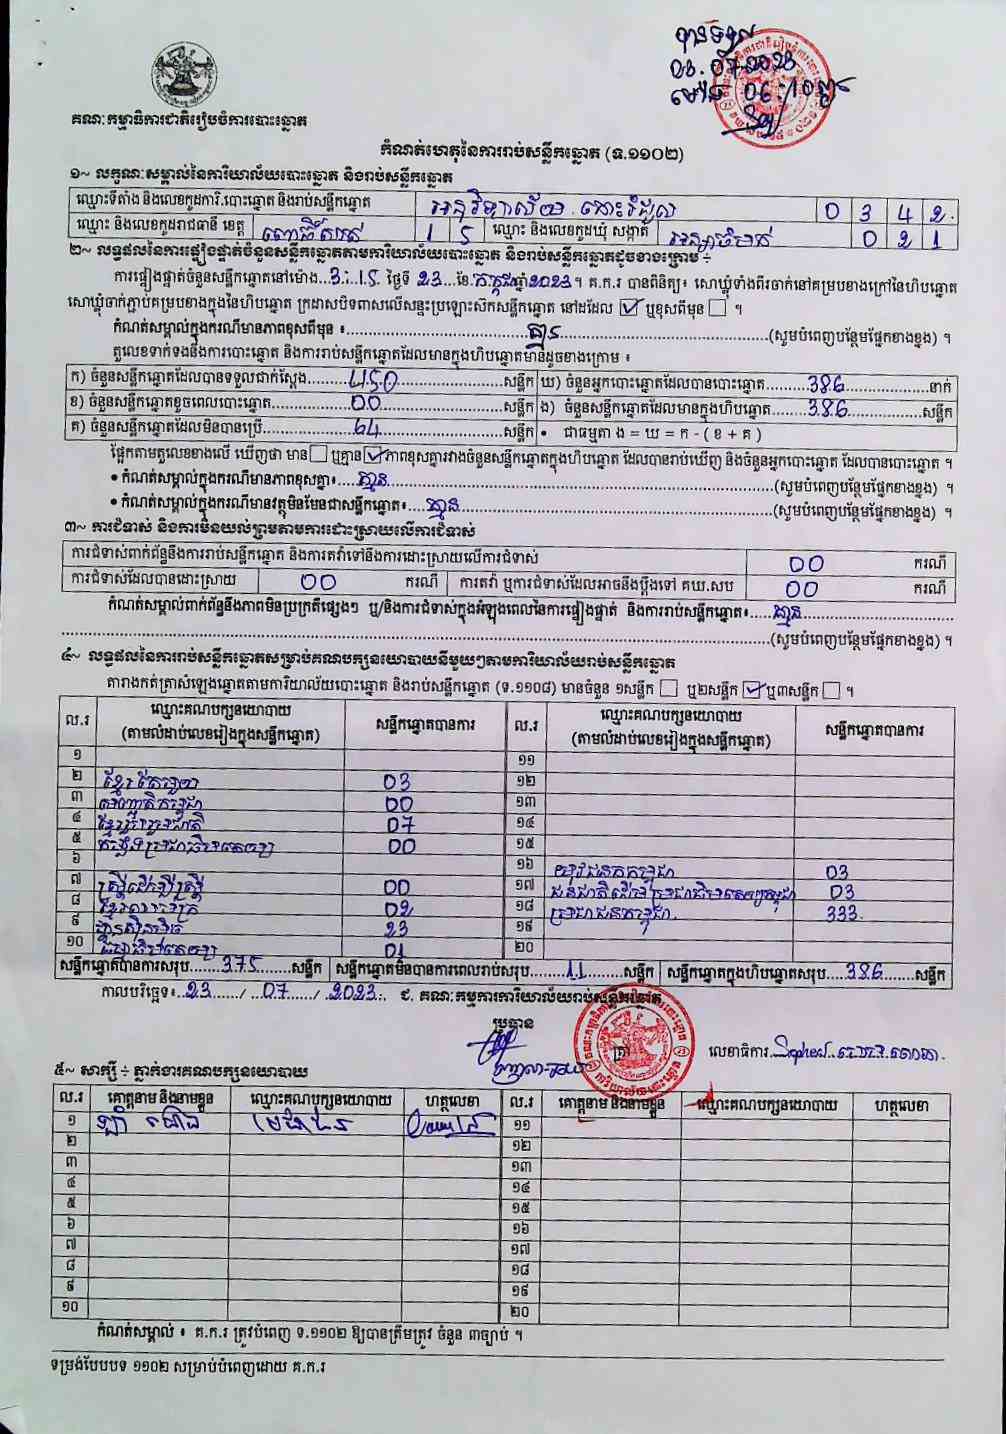 បានទទួល
០៦:១០
គណៈកម្មាធិការជាតិរៀបចំការបោះឆ្នោត
កំណត់ហេតុនៃការរាប់សន្លឹកឆ្នោត (ទ.១១០២)
១~ លក្ខណៈសម្គាល់នៃការិយាល័យបោះឆ្នោត និងរាប់សន្លឹកឆ្នោត
ឈ្មោះទីតាំង និងលេខកូដការិ.បោះឆ្នោត និងរាប់សន្លឹកឆ្នោត អនុវិទ្យាល័យ 0 3 4 2
ឈ្មោះ និងលេខកូដរាជធានី ខេត្ត ពោធិ៍សាត់ 1 5 ឈ្មោះ និងលេខកូដឃុំ សង្កាត់ 0 2 1
២~ លទ្ធផលនៃការផ្ទៀងផ្ទាត់ចំនួនសន្លឹកឆ្នោតតាមការិយាល័យបោះឆ្នោត និងរាប់សន្លឹកឆ្នោតដូចខាងក្រោម ÷
ការផ្ទៀងផ្ទាត់ចំនួនសន្លឹកឆ្នោតនៅម៉ោង...3:15 ថ្ងៃទី 23 ខែ កក្កដា ឆ្នាំ 2023។ គ.ក.រ បានពិនិត្យ៖ សោឃ្លុំទាំងពីរចាក់នៅគម្របខាងក្រៅនៃហិបឆ្នោត
សោឃ្លុំចាក់ភ្ជាប់គម្របខាងក្នុងនៃហិបឆ្នោត ក្រដាសបិទពាសលើសន្ទះប្រឡោះស៊កសន្លឹកឆ្នោត នៅដដែល ☑ ឬខុសពីមុន ☐ ។
កំណត់សម្គាល់ក្នុងករណីមានភាពខុសពីមុន ៖ គ្មាន (សូមបំពេញបន្ថែមផ្នែកខាងខ្នង) ។
តួលេខទាក់ទងនឹងការបោះឆ្នោត និងការរាប់សន្លឹកឆ្នោតដែលមានក្នុងហិបឆ្នោតមានដូចខាងក្រោម ៖
ក) ចំនួនសន្លឹកឆ្នោតដែលបានទទួលជាក់ស្តែង 450 សន្លឹក ឃ) ចំនួនអ្នកបោះឆ្នោតដែលបានបោះឆ្នោត 386 នាក់
ខ) ចំនួនសន្លឹកឆ្នោតខូចពេលបោះឆ្នោត 00 សន្លឹក ង) ចំនួនសន្លឹកឆ្នោតដែលមានក្នុងហិបឆ្នោត 386 សន្លឹក
គ) ចំនួនសន្លឹកឆ្នោតដែលមិនបានប្រើ 64 សន្លឹក • ជាធម្មតា ង = ឃ = ក - ( ខ + គ )
ផ្អែកតាមតួលេខខាងលើ ឃើញថា មាន ☐ ឬគ្មាន ☑ ភាពខុសគ្នារវាងចំនួនសន្លឹកឆ្នោតក្នុងហិបឆ្នោត ដែលបានរាប់ឃើញ និងចំនួនអ្នកបោះឆ្នោត ដែលបានបោះឆ្នោត ។
• កំណត់សម្គាល់ក្នុងករណីមានភាពខុសគ្នា៖ គ្មាន (សូមបំពេញបន្ថែមផ្នែកខាងខ្នង) ។
• កំណត់សម្គាល់ក្នុងករណីមានវត្ថុមិនមែនជាសន្លឹកឆ្នោត៖ គ្មាន (សូមបំពេញបន្ថែមផ្នែកខាងខ្នង) ។
៣~ ការជំទាស់ និងការមិនយល់ព្រមតាមការដោះស្រាយលើការជំទាស់
ការជំទាស់ពាក់ព័ន្ធនឹងការរាប់សន្លឹកឆ្នោត និងការតវ៉ាទៅនឹងការដោះស្រាយលើការជំទាស់ 00 ករណី
ការជំទាស់ដែលបានដោះស្រាយ 00 ករណី ការតវ៉ា ឬការជំទាស់ដែលអាចនឹងប្តឹងទៅ គឃ.សប 00 ករណី
កំណត់សម្គាល់ពាក់ព័ន្ធនឹងភាពមិនប្រក្រតីផ្សេងៗ ឬ/និងការជំទាស់ក្នុងអំឡុងពេលនៃការផ្ទៀងផ្ទាត់ និងការរាប់សន្លឹកឆ្នោត៖ គ្មាន
(សូមបំពេញបន្ថែមផ្នែកខាងខ្នង) ។
៤~ លទ្ធផលនៃការរាប់សន្លឹកឆ្នោតសម្រាប់គណបក្សនយោបាយនីមួយៗតាមការិយាល័យរាប់សន្លឹកឆ្នោត
តារាងកត់ត្រាសំឡេងឆ្នោតតាមការិយាល័យបោះឆ្នោត និងរាប់សន្លឹកឆ្នោត (ទ.១១០៨) មានចំនួន ១សន្លឹក ☐ ឬ២សន្លឹក ☑ ឬ៣សន្លឹក ☐ ។
ល.រ ឈ្មោះគណបក្សនយោបាយ (តាមលំដាប់លេខរៀងក្នុងសន្លឹកឆ្នោត) សន្លឹកឆ្នោតបានការ ល.រ ឈ្មោះគណបក្សនយោបាយ (តាមលំដាប់លេខរៀងក្នុងសន្លឹកឆ្នោត) សន្លឹកឆ្នោតបានការ
១ ១១
២ ខ្មែរតែមួយ 03 ១២
៣ សញ្ជាតិកម្ពុជា 00 ១៣
៤ ខ្មែររួបរួមជាតិ 07 ១៤
៥ កម្លាំងប្រជាធិបតេយ្យ 00 ១៥
៦ ១៦ យុវជនកម្ពុជា 03
៧ ស្ត្រីដើម្បីស្ត្រី 00 ១៧ ជនជាតិដើមប្រជាធិបតេយ្យកម្ពុជា 03
៨ 02 ១៨ ប្រជាជនកម្ពុជា 333
៩ ហ៊្វុនស៊ិនប៉ិច 23 ១៩
១០ 01 ២០
សន្លឹកឆ្នោតបានការសរុប 375 សន្លឹក សន្លឹកឆ្នោតមិនបានការពេលរាប់សរុប 11 សន្លឹក សន្លឹកឆ្នោតក្នុងហិបឆ្នោតសរុប 386 សន្លឹក
កាលបរិច្ឆេទ៖ 23 / 07 / 2023 ជ. គណៈកម្មការការិយាល័យរាប់សន្លឹកឆ្នោត
ប្រធាន
ត្រា
លេខាធិការ
៥~ សាក្សី ÷ ភ្នាក់ងារគណបក្សនយោបាយ
ល.រ គោត្តនាម និងនាមខ្លួន ឈ្មោះគណបក្សនយោបាយ ហត្ថលេខា ល.រ គោត្តនាម និងនាមខ្លួន ឈ្មោះគណបក្សនយោបាយ ហត្ថលេខា
១ ១១
២ ១២
៣ ១៣
៤ ១៤
៥ ១៥
៦ ១៦
៧ ១៧
៨ ១៨
៩ ១៩
១០ ២០
កំណត់សម្គាល់ ៖ គ.ក.រ ត្រូវបំពេញ ទ.១១០២ ឱ្យបានត្រឹមត្រូវ ចំនួន ៣ច្បាប់ ។
ទម្រង់បែបបទ ១១០២ សម្រាប់បំពេញដោយ គ.ក.រ